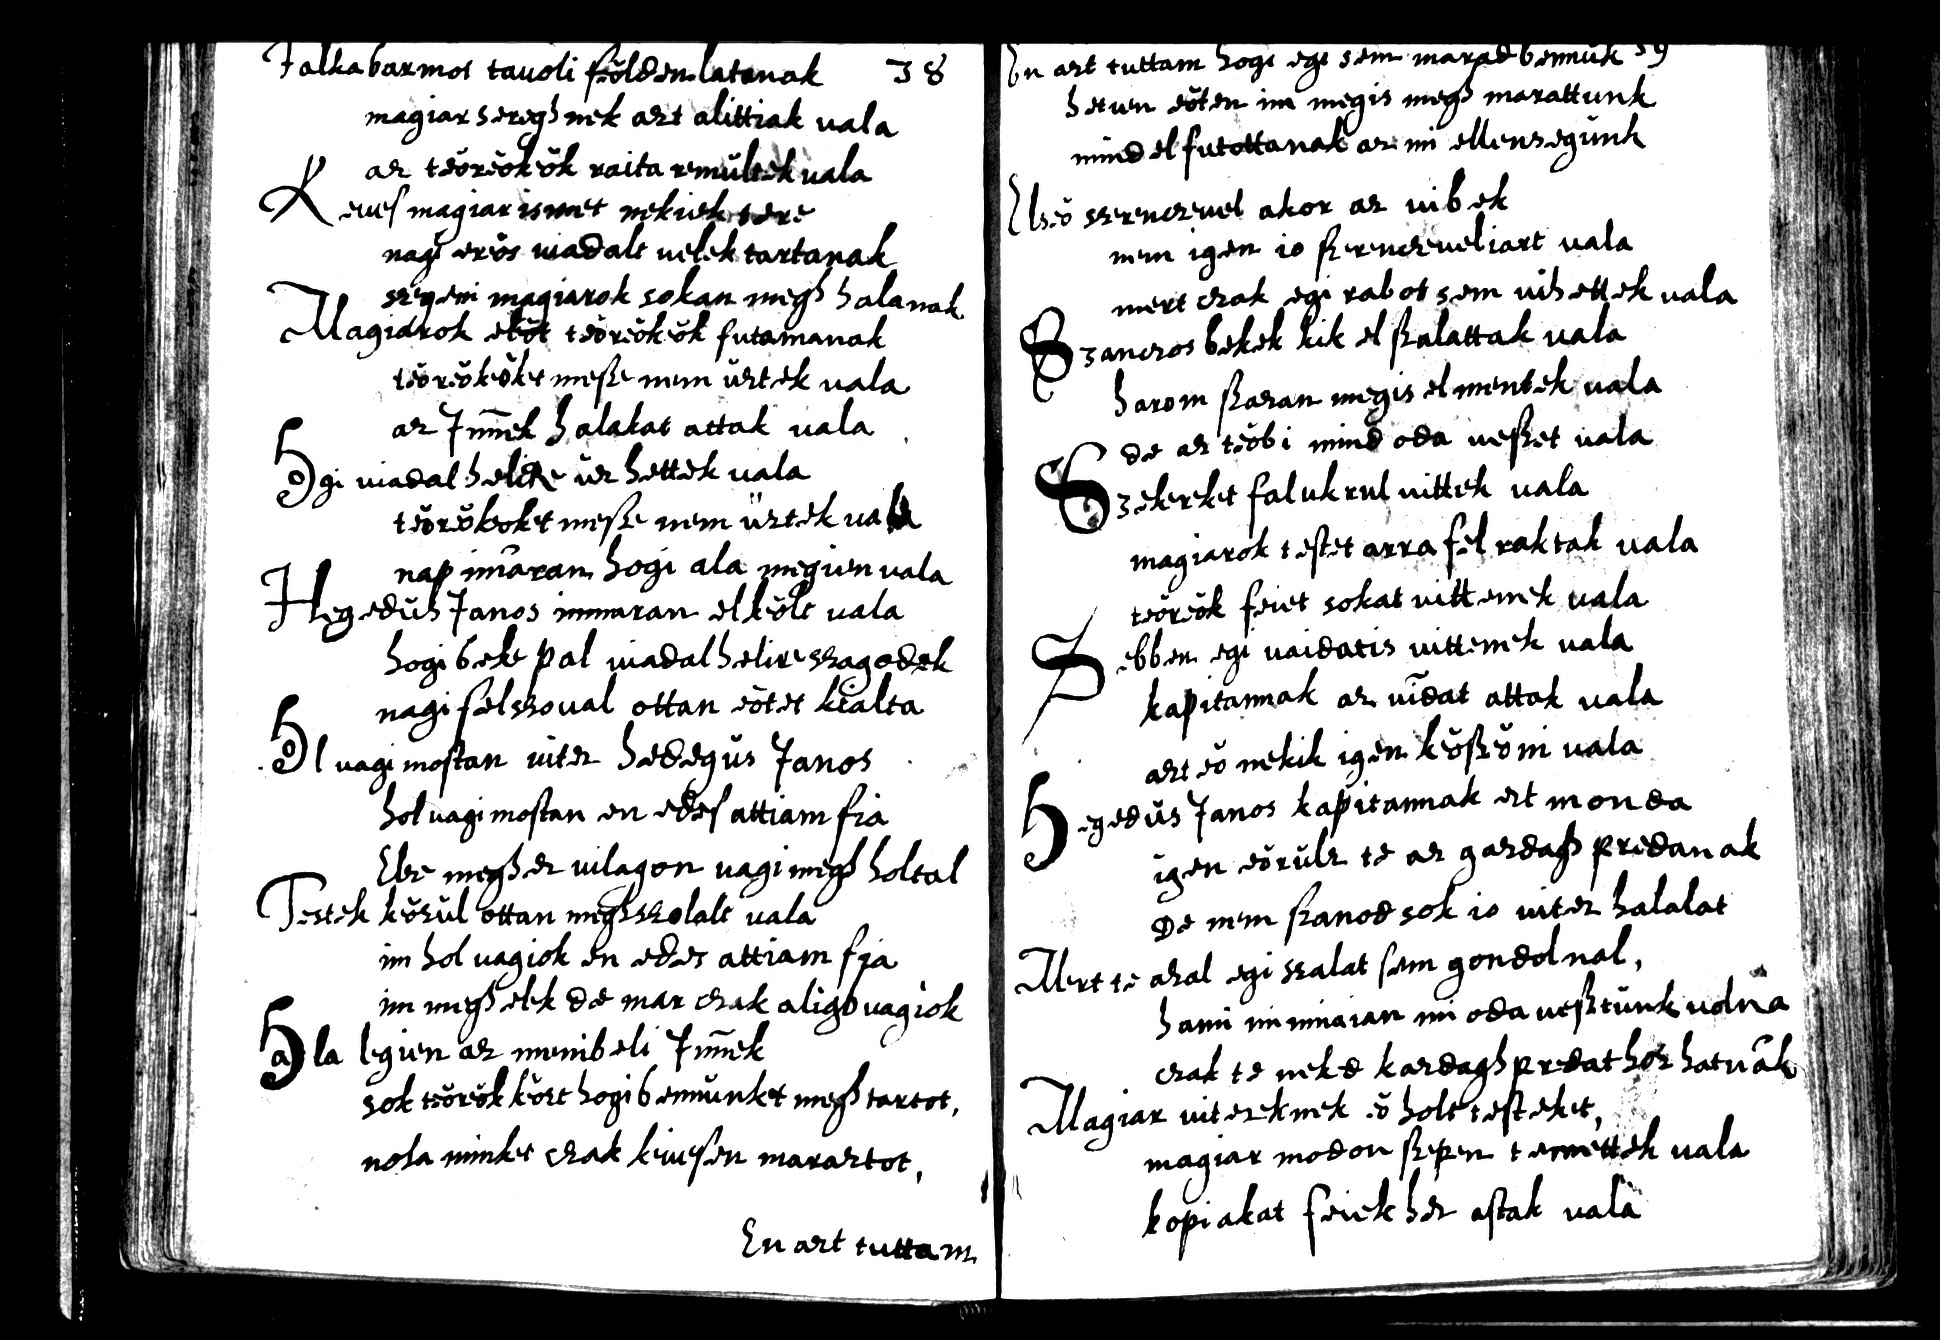 38
Falka barmot tauoli földen latanak
magiar seregh nek azt alittiak vala
az teöreökök raita remültek vala
Keues magiar ismet nekiek tere
nagi erös uiadalt uelek tartanak
szegeni magiarok sokan megh halanak
Magiarok elöt teöreökök futamanak
teöreököket messze nem üztek vala
az Istennek halakat attak vala
Egi uiadal helire üz hettek vala
teöreökoket messze nem üztek vala
nap imaran hogi ala megien vala
Hegedüs Janos immaran elkölt vala
hogi beke pal uiadal helire szagodek
nagi felszoual ottan eötet kialta
Ol uagi mostan uitez hedegüs Janos
hol uagi mostan en edes attiam fia
Elsz megh ez uilagon uagi megh holtal
Testek közül ottan megh szolalt vala
im hol uagiok en edes attiam fia
im megh elek de mar czak aligh uagiok
Hala legien az menibeli Istennek
sok teörök közt hogi bennünket megh tartot,
noha minket czak keuesen maraztot,
En azt tuttam
39
En azt tuttam hogi egi sem marad bennük
hetuen eöten im megis megh marattunk
mind el futottanak az mi ellensegünk
Elseö szerenczeuel akor az uibek
nem igen io szerenczeuel iart vala
mert czak egi rabot sem uihettek vala
Szanczos bekek kik el szalattak vala
harom szazan megis el mentek vala
de az teöbi mind oda ueszet vala
Szekerket falukrul uittek vala
magiarok testet arra fel raktak vala
teöreök feiet sokat uittenek vala
Sebben egi uaidatis uittenek vala
kapitannak az uidat attak vala
azt eö nekik igen köszöni vala
Hegedüs Janos kapitannak ezt monda
igen eörülz te az gazdagh predanak
De nem szanod sok io uitez halalat
Mert te azal egi szalat sem gondolnal,
hami mi maian mi oda uesztünk uolna
czak te neked kazdagh predat hoz hatnak
Magiar uitezeknek eö holt testeket,
magiar modon szepen temettek vala
kopiakat feiek hez astak vala